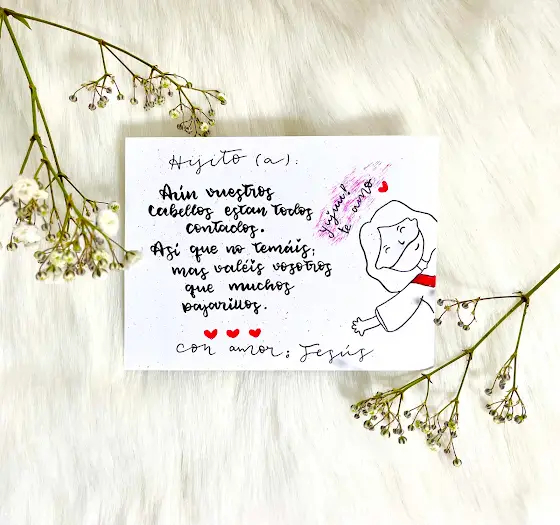 Hijito (a):
¡y ¡uuu!
te amo
Aún vuestros
cabellos estan todos
contados.
Así que no temáis;
mas valéis vosotros
que muchos
pajarillos.
con amor: Jesús